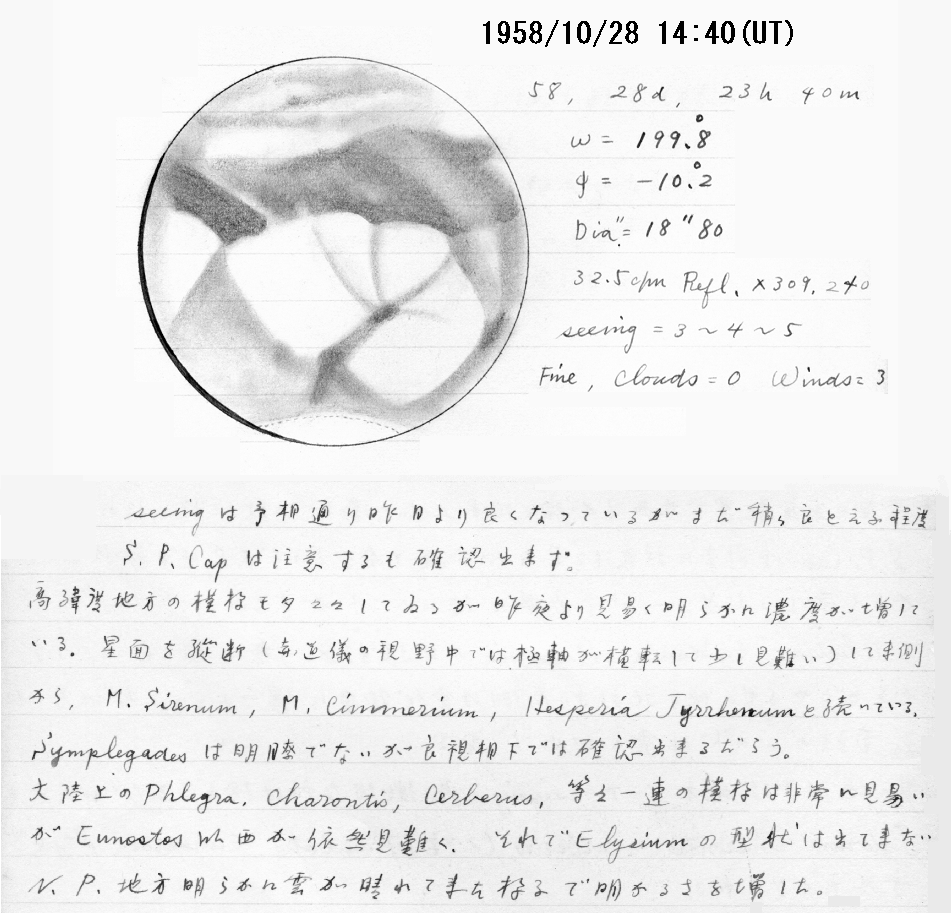 1958/10/28 14:40(UT)
58, 28d, 23h 40m
ω = 199.°8
φ = -10.°2
Dia". = 18"80
32.5cm Refl. ×309, 240
seeing = 3 ~ 4 ~ 5
Fine, Clouds = 0 Winds = 3
seeing は予想通り昨日より良くなっているがまだ稍々良と云える程度
S. P. Cap は注意するも確認出来ず。
高緯度地方の模様モタヱヱしてゐるが昨夜より見易く明らかに濃度が増して
いる。星面を縦断(赤道儀の視野中では極軸が横転して少し見難い)して東側
から, M. Sirenum, M. Cimmerium, Hesperia Tyrrhenum と続いている.
Symplegades は明瞭でないが良視相下では確認出来るだろう。
大陸上の Phlegra. Charontis, Cerberus, 等々一連の模様は非常に見易い
が Eunostos 以西が依然見難く、それで Elysium の型状は出てまない
N. P. 地方明らかに雲が晴れてきた様子で明かるさを増した。